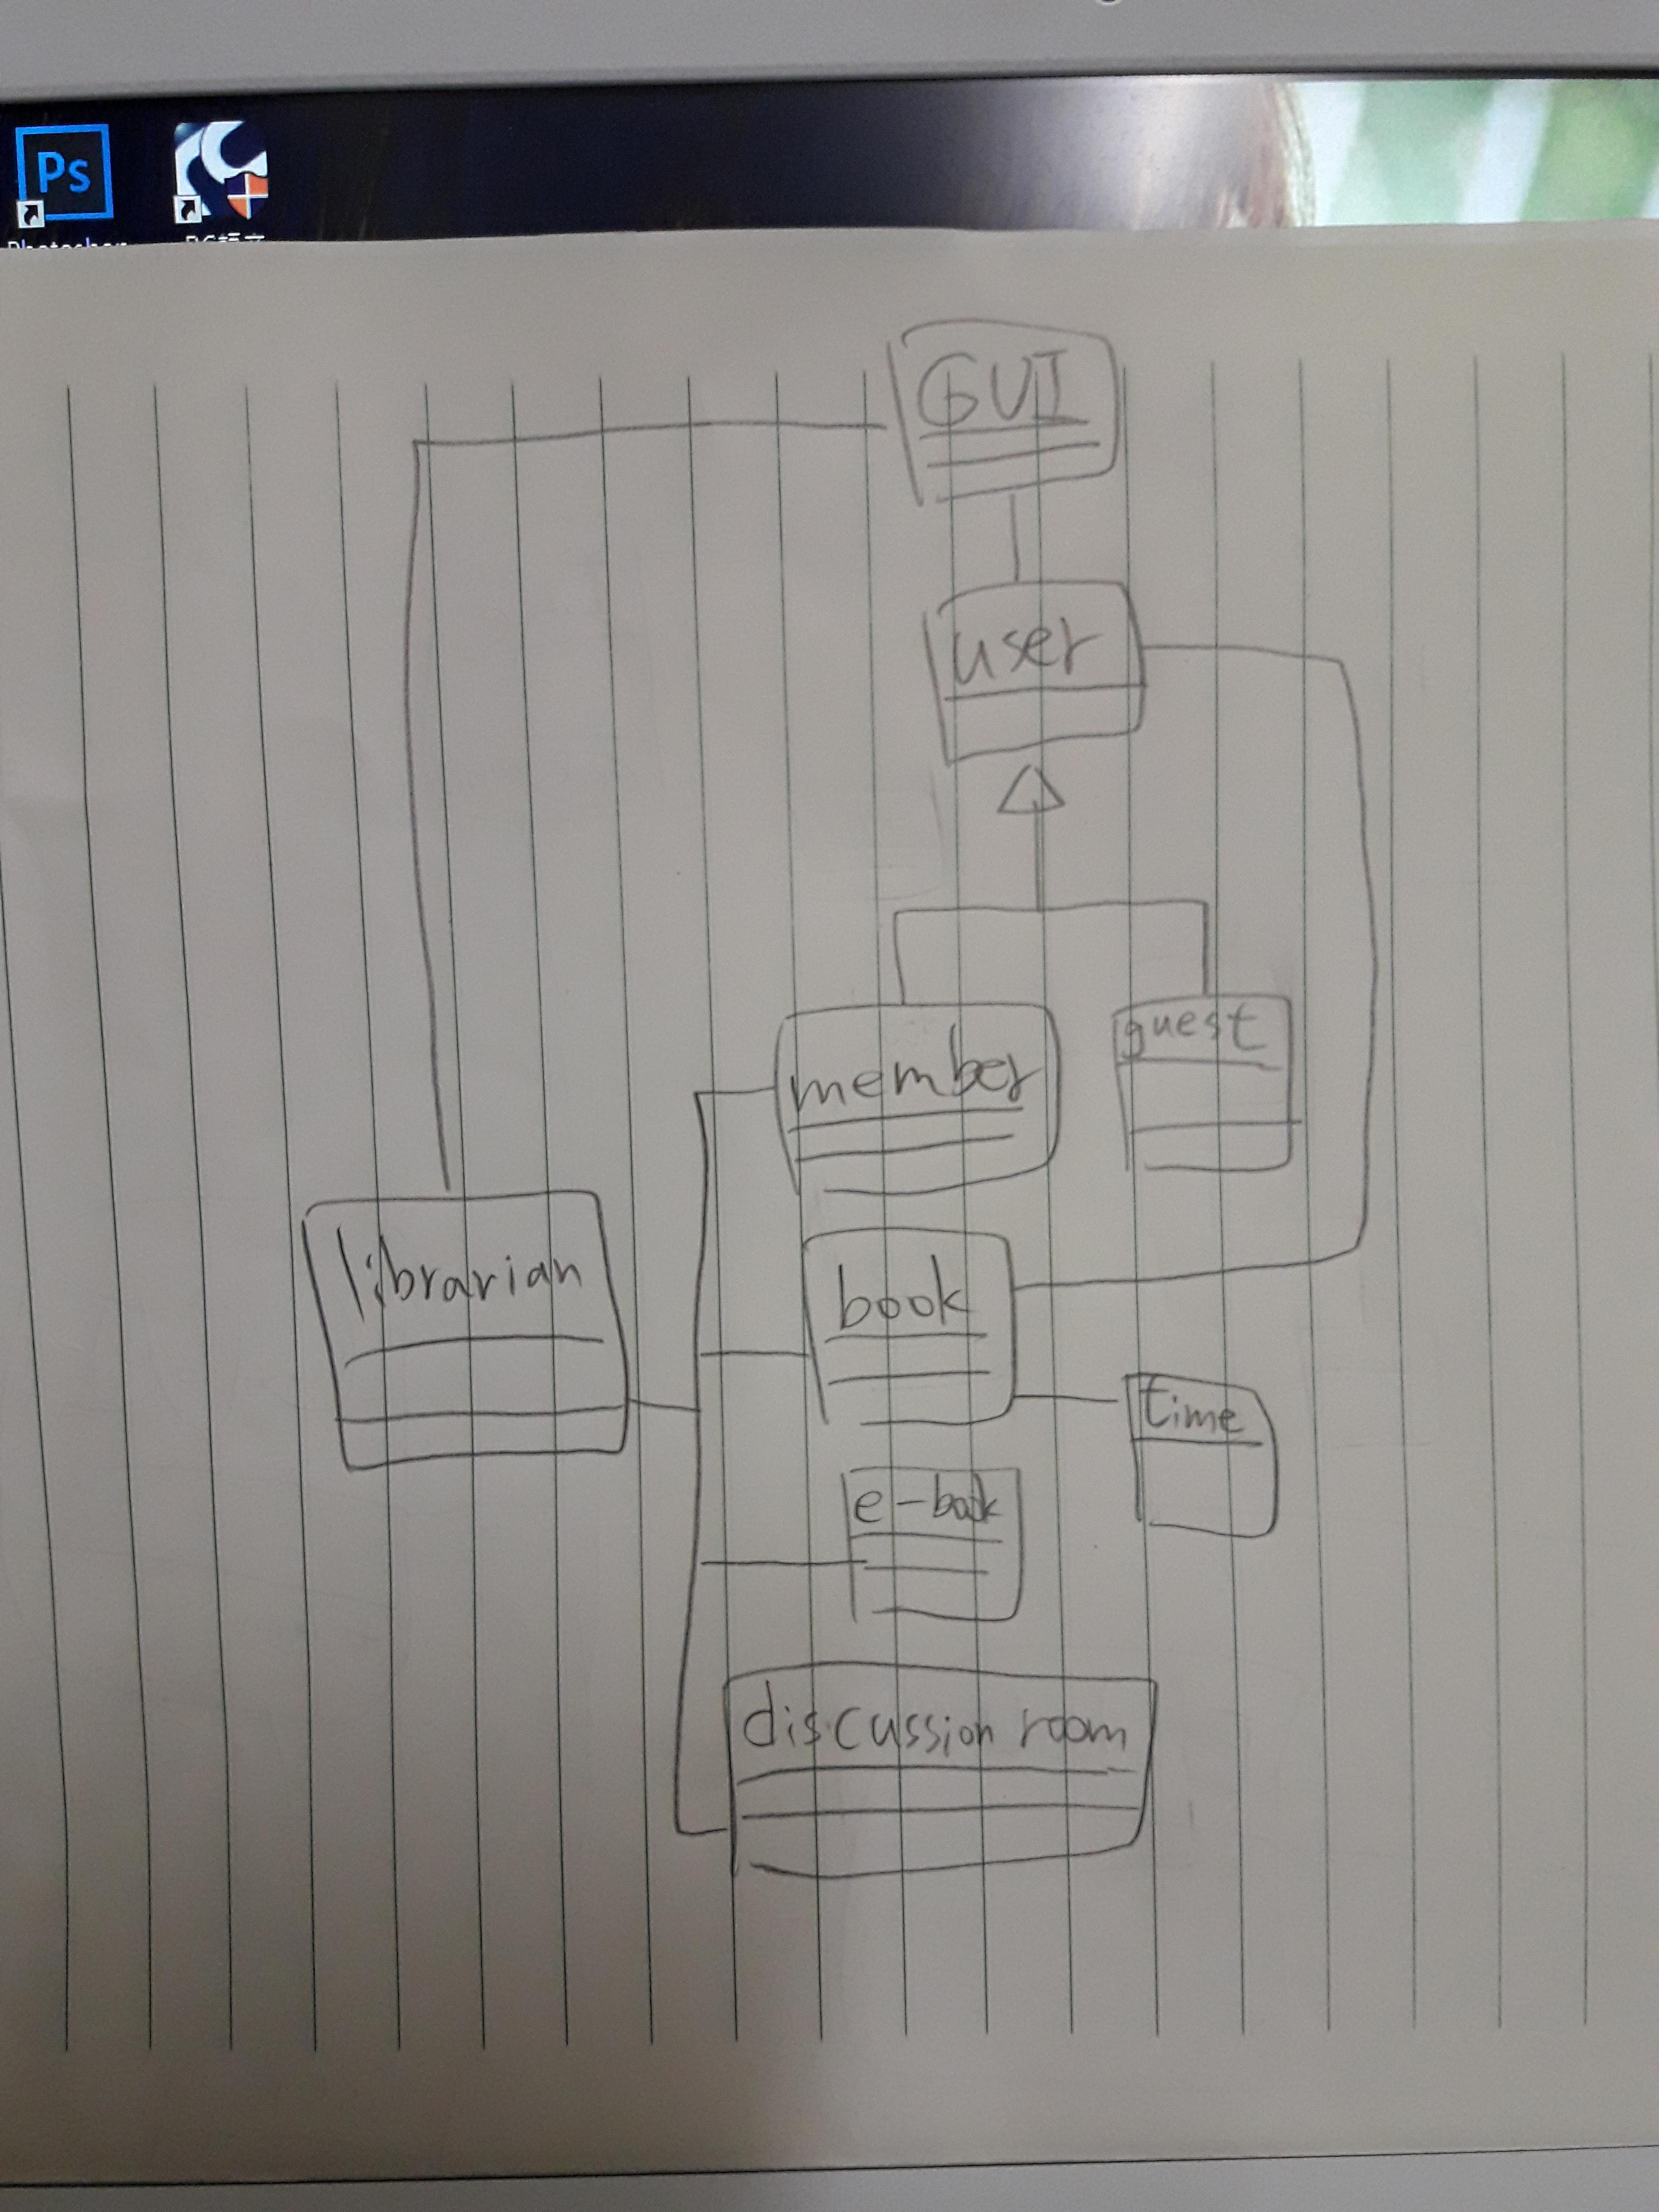 Ps
GUI
user
member
guest
librarian
book
time
e-book
discussion room